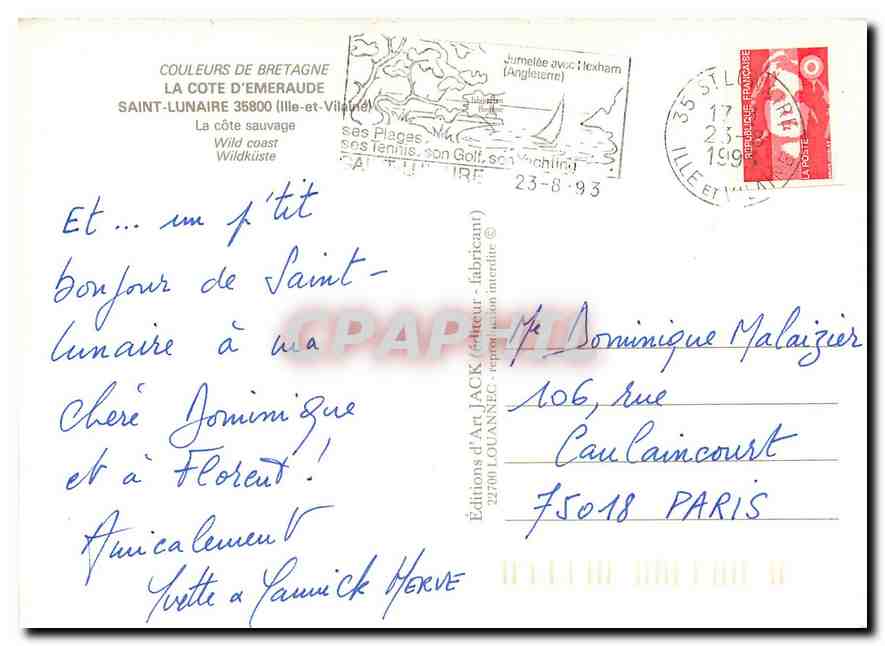 COULEURS DE BRETAGNE
LA COTE D'EMERAUDE
SAINT-LUNAIRE 35800 (Ille-et-Vilaine)
La côte sauvage
Wild coast
Wildküste
Jumelée avec Hexham
(Angleterre)
ses Plages,
ses Tennis, son Golf, son Yachting
SAINT LUNAIRE 23-8-93
35 ST LUNAIRE
17
23-8
1993
ILLE ET VILAINE
REPUBLIQUE FRANÇAISE
LA POSTE
Et... un p'tit
bonjour de Saint-
lunaire à ma
chère Dominique
et à Florent!
Amicalement
Yvette & Yannick HERVE
Éditions d'Art JACK (éditeur - fabricant)
22700 LOUANNEC - reproduction interdite ©
CPAPHIL
Me Dominique Malaizier
106, rue
Caulaincourt
75018 PARIS